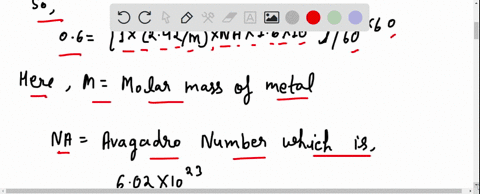 So,
0.6 = [1 × (2.42/m) × NA × 1.6 × 10 /60 × 60
Here, M = Molar mass of metal
NA = Avagadro Number which is,
6.02 × 10²³